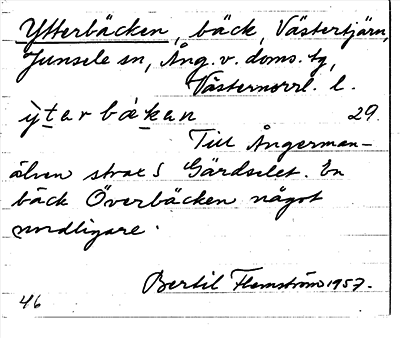 Ytterbäcken, bäck, Västertjärn,
Junsele sn, Ång. v. doms. tg,
Västernorrl. l.
ỳtarbàkan 29.
Till Ångerman-
älven strax S Gärdselet. En
bäck Överbäcken något
nordligare.
Bertil Flemström 1957.
46